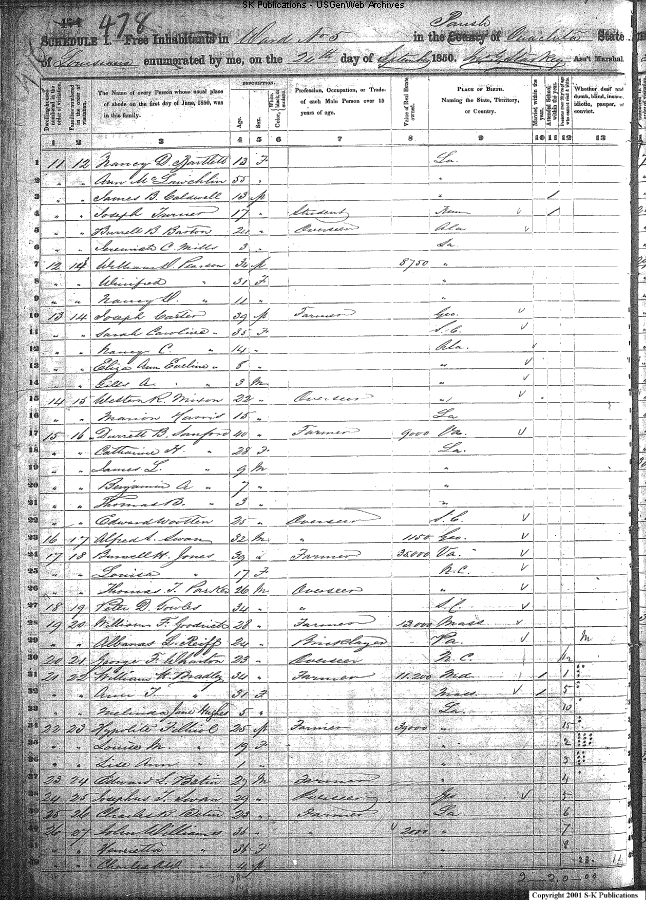 SK Publications - USGenWeb Archives
478
SCHEDULE I. Free Inhabitants in Ward No 5 in the Parish County of Ouachita State
of Louisiana enumerated by me, on the 20th day of September 1850. Ass't Marshal
DESCRIPTION.
Dwelling-houses numbered in the order of visitation.
Families numbered in the order of visitation.
The Name of every Person whose usual place of abode on the first day of June, 1850, was in this family.
Age.
Sex.
Color, White, black, or mulatto.
Profession, Occupation, or Trade of each Male Person over 15 years of age.
Value of Real Estate owned.
PLACE OF BIRTH. Naming the State, Territory, or Country.
Married within the year.
Attended School within the year.
Whether deaf and dumb, blind, insane, idiotic, pauper, or convict.
1 2 3 4 5 6 7 8 9 10 11 12 13
1 11 12 Nancy D. Bartlett 13 F La.
2 " " Ann McLawchlin 55 " "
3 " " James B. Caldwell 13 M " 1
4 " " Joseph Turner 17 " Student 1
5 " " Burrell B. Barton 24 " Overseer Ala
6 " " Jeremiah C. Mills 3 " La
7 12 William D. Pearson M 8750 "
8 " " Winifred " 31 F "
9 " " Nancy " 11 " "
10 13 14 Joseph Carter 39 M Farmer Geo.
11 " " Sarah Caroline " 35 F S.C.
12 " " Nancy C. " 14 " Ala.
13 " " Eliza Ann Eveline " 8 " "
14 " " A. " 3 M "
15 14 15 Weston R. Mixon 22 " Overseer "
16 " " Marion Harris 15 " La
17 15 16 Durrett B. Sanford 40 " Farmer 9000 Va.
18 " " Catharine H " 28 F La.
19 " " James L. " 9 M "
20 " " Benjamin A " 7 " "
21 " " Thomas B. " 3 " "
22 " " Edward Wootten 25 " Overseer S.C.
23 16 17 Alfred L. Swan 32 M " 1150 Geo.
24 17 18 Burwell H. Jones 39 " Farmer 35000 Va.
25 " " Louisa " 17 F N.C.
26 " " Thomas T. Parker 26 M Overseer "
27 18 19 Peter D. 34 " " S.C.
28 19 20 William F. Goodrich 28 " Farmer 13,000 Mass
29 " " Albanas G. Reiff 24 " Bricklayer Pa M
30 20 21 George F. Wharton 23 " Overseer N.C.
31 21 22 William H. Bradley 34 " Farmer 11,200 Md 1 1
32 " " Ann T. " 31 F Miss. 1 5
33 " " Malinda Jane Hughes 5 " La 10
34 22 23 Hypolite Filhiol 25 M Farmer 39000 " 15
35 " " Louisa M " 19 F " 2
36 " " Lise Ann " 1 " " 3
37 23 24 Edward L. Betin 27 M Farmer " 4
38 24 25 Josephus T. Swan 29 " Overseer Geo 5
39 25 26 Charles R. Betin 23 " Farmer La 6
40 26 27 John Williams 36 " " 2000 " 7
41 " " Henrietta " 36 F " 8
42 " " Charles " 4 M "
Copyright 2001 S-K Publications